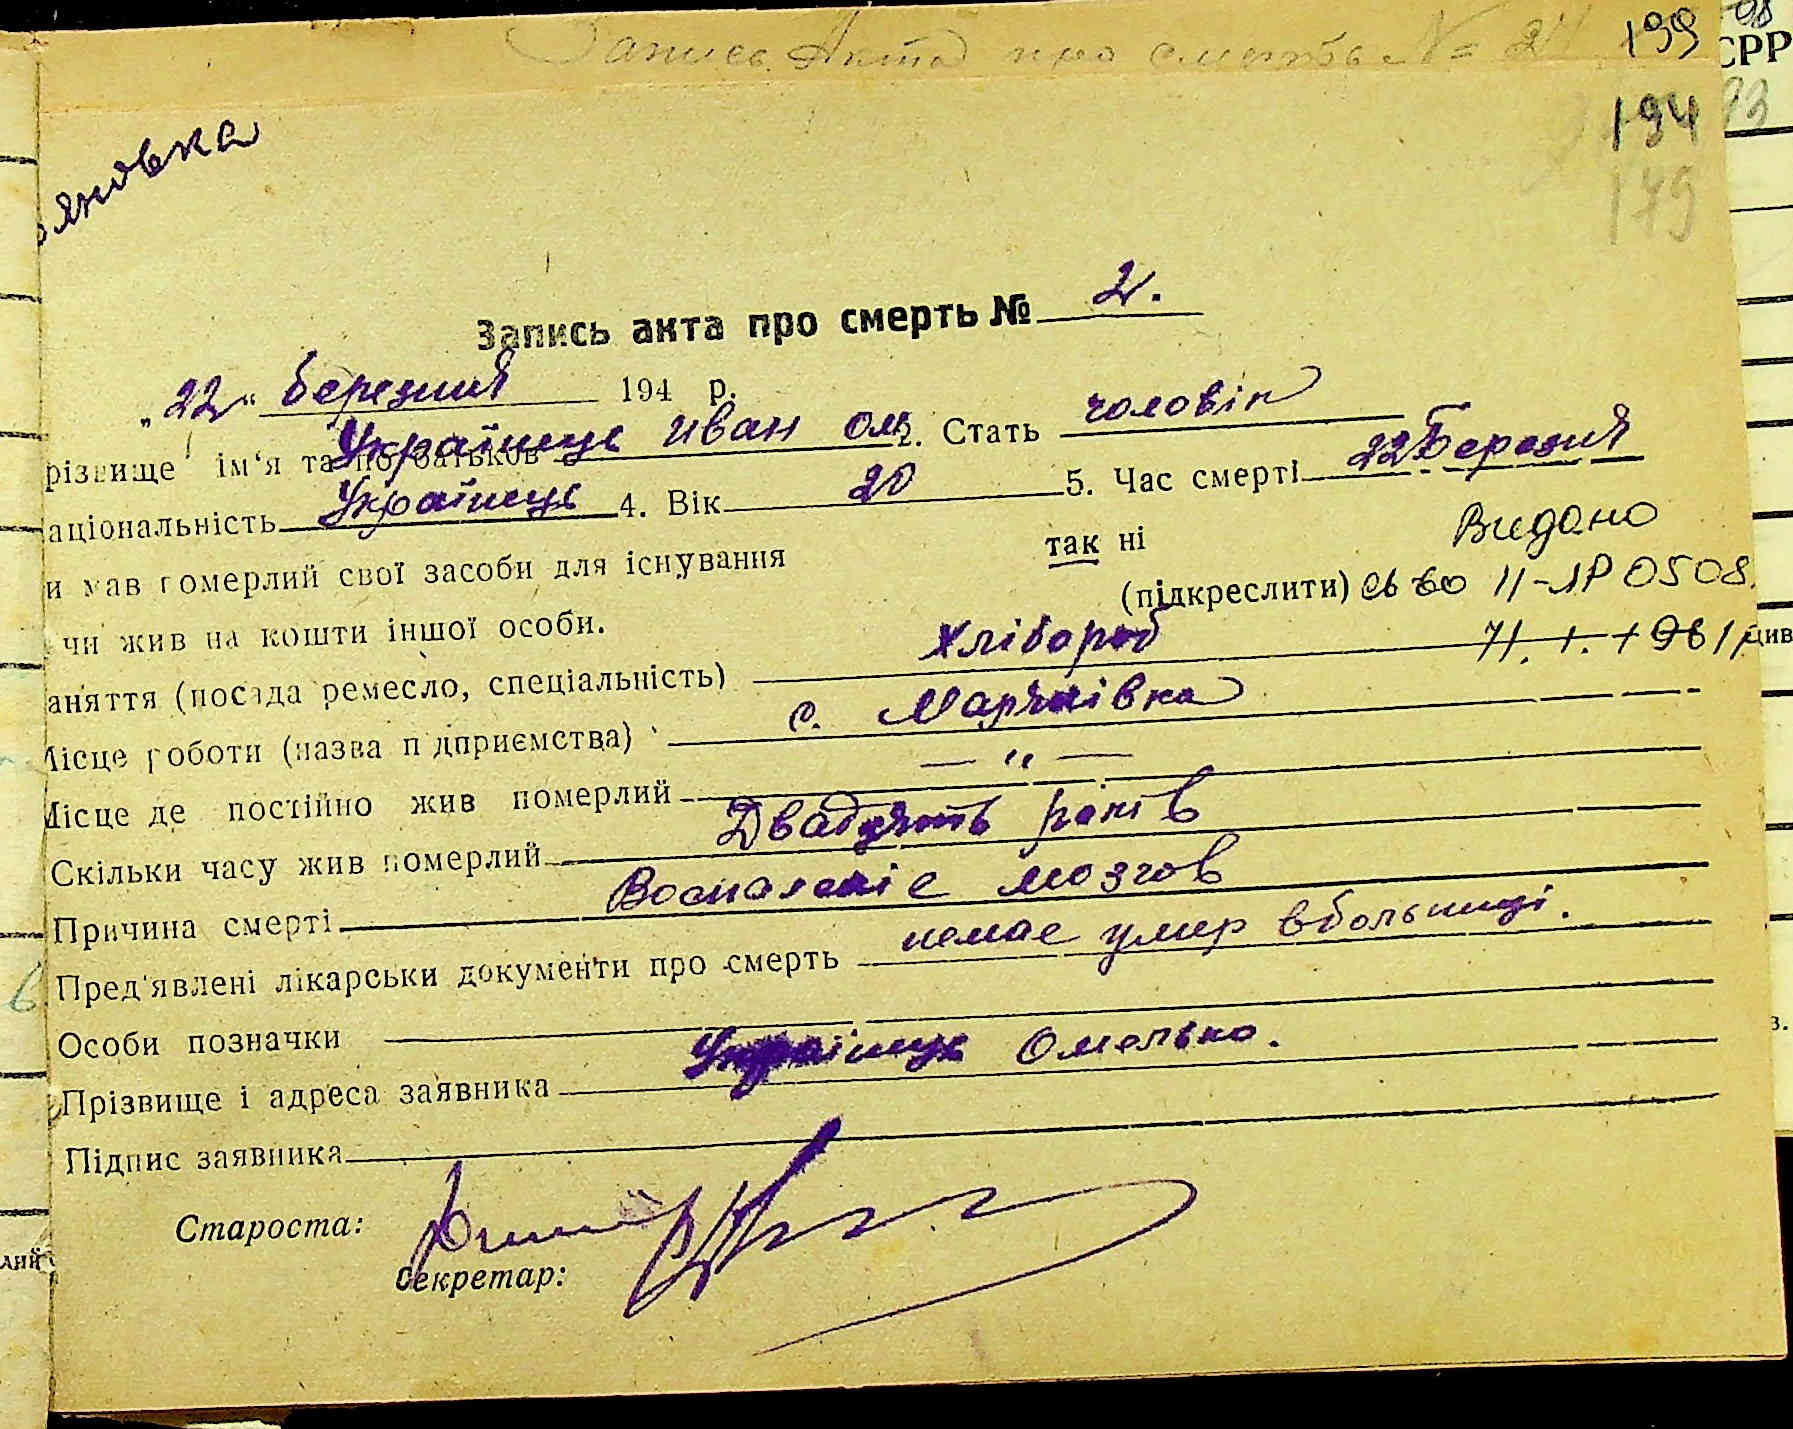 Запись Акта про смерть № 24 199
СРР
194
179
яновка
Запись акта про смерть № 2.
„22" березня 194 р.
різвище ім'я та по батьков Українець Иван Ом 2. Стать чоловік
аціональність Українець 4. Вік 20 5. Час смерті 22 Березня
и мав померлий свої засоби для існування так ні Видано
чи жив на кошти іншої особи. (підкреслити) св во II-ЛР 0508
аняття (посада ремесло, спеціальність) Хлібороб
Місце роботи (назва підприємства) с. Мар'янівка
Місце де постійно жив померлий — " —
Скільки часу жив померлий Двадцять років
Причина смерті Воспаленіе мозгов
Пред'явлені лікарськи документи про смерть немае умер вбольниці.
Особи позначки
Прізвище і адреса заявника Українець Омелько.
Підпис заявника
Староста:
Секретар: